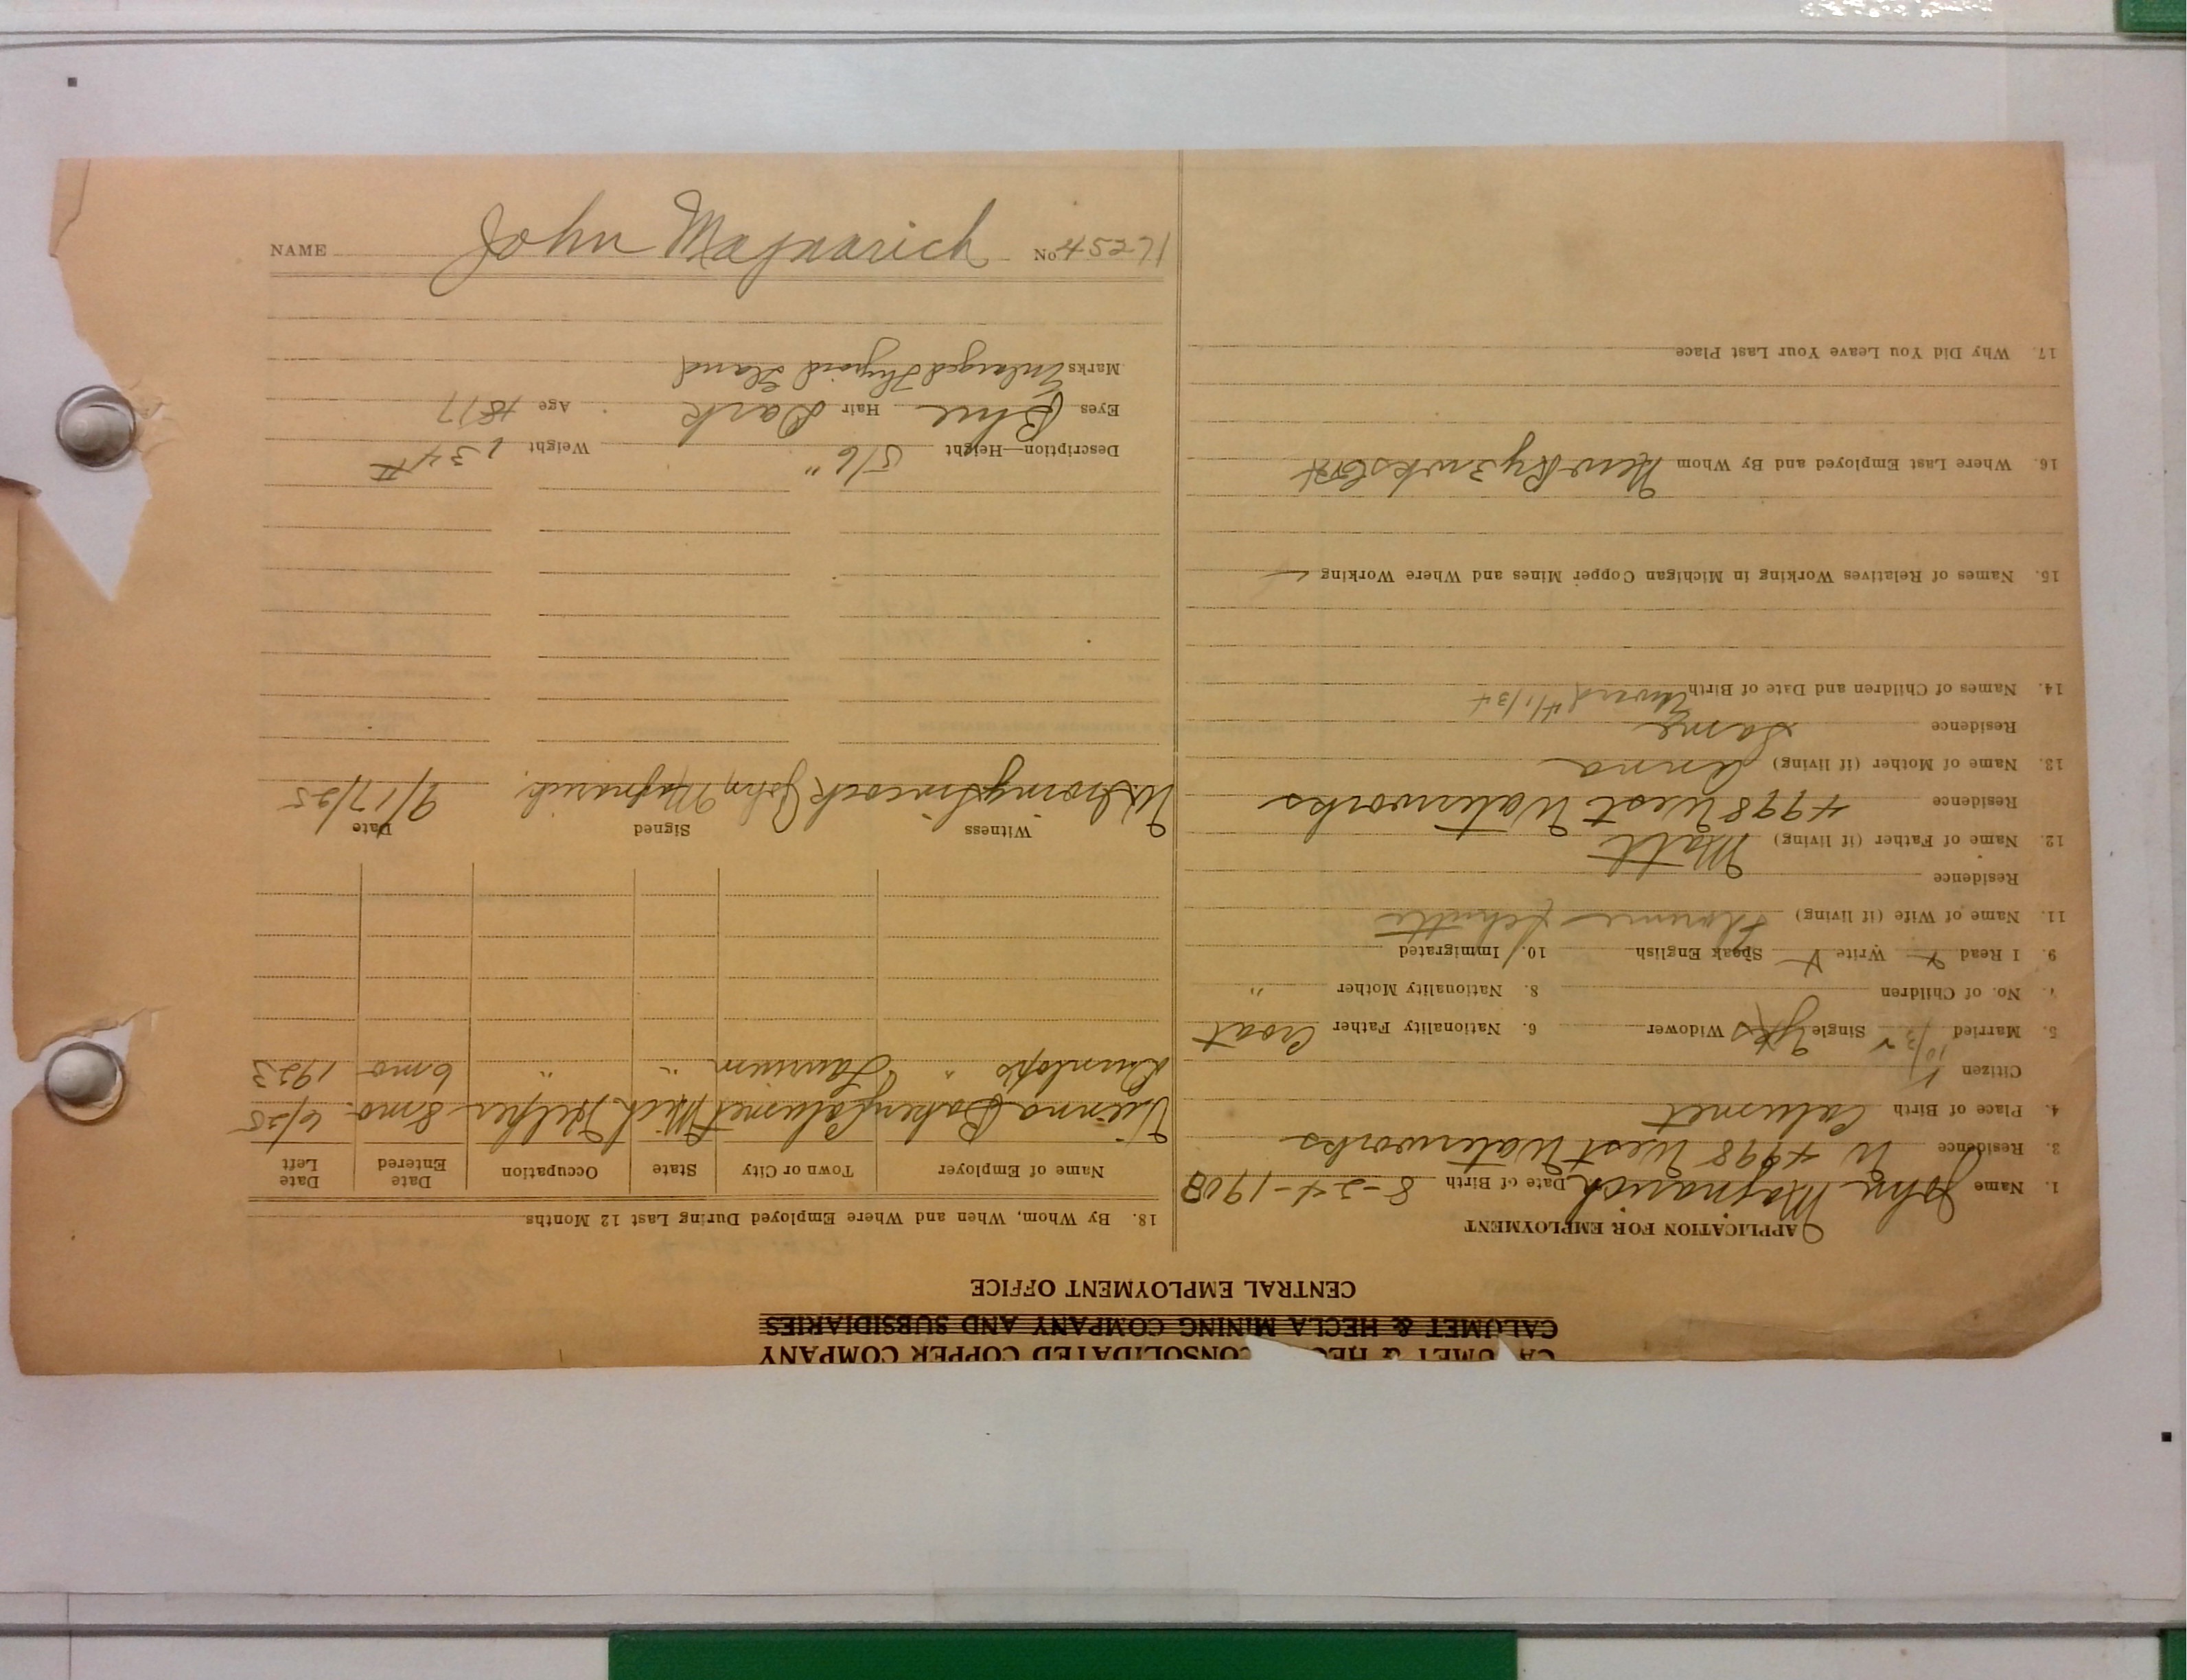 CALUMET & HECLA CONSOLIDATED COPPER COMPANY
CALUMET & HECLA MINING COMPANY AND SUBSIDIARIES
CENTRAL EMPLOYMENT OFFICE
APPLICATION FOR EMPLOYMENT
1. Name John Majnarich Date of Birth 8-24-1908
3. Residence N 4998 West Waterworks
4. Place of Birth Calumet
Citizen
5. Married 10/3 Single yes Widower 6. Nationality Father Croat
7. No. of Children 8. Nationality Mother "
9. I Read Write Speak English 10. Immigrated
11. Name of Wife (if living) Florence
Residence
12. Name of Father (if living) Matt
Residence 4998 West Waterworks
13. Name of Mother (if living) Anna
Residence Same
14. Names of Children and Date of Birth 4/1/34
15. Names of Relatives Working in Michigan Copper Mines and Where Working
16. Where Last Employed and By Whom
17. Why Did You Leave Your Last Place
18. By Whom, When and Where Employed During Last 12 Months
Name of Employer Town or City State Occupation Date Entered Date Left
Vienna Bakery Calumet Mich Helper 8 mo. 6/25
Dunlops " Laurium " " 6 mo 1923
Witness Signed Date
John Majnarich 9/17/25
Description—Height 5/6" Weight 134#
Eyes Blue Hair Dark Age 17
Marks Enlarged Thyroid Gland
NAME John Majnarich No. 45271